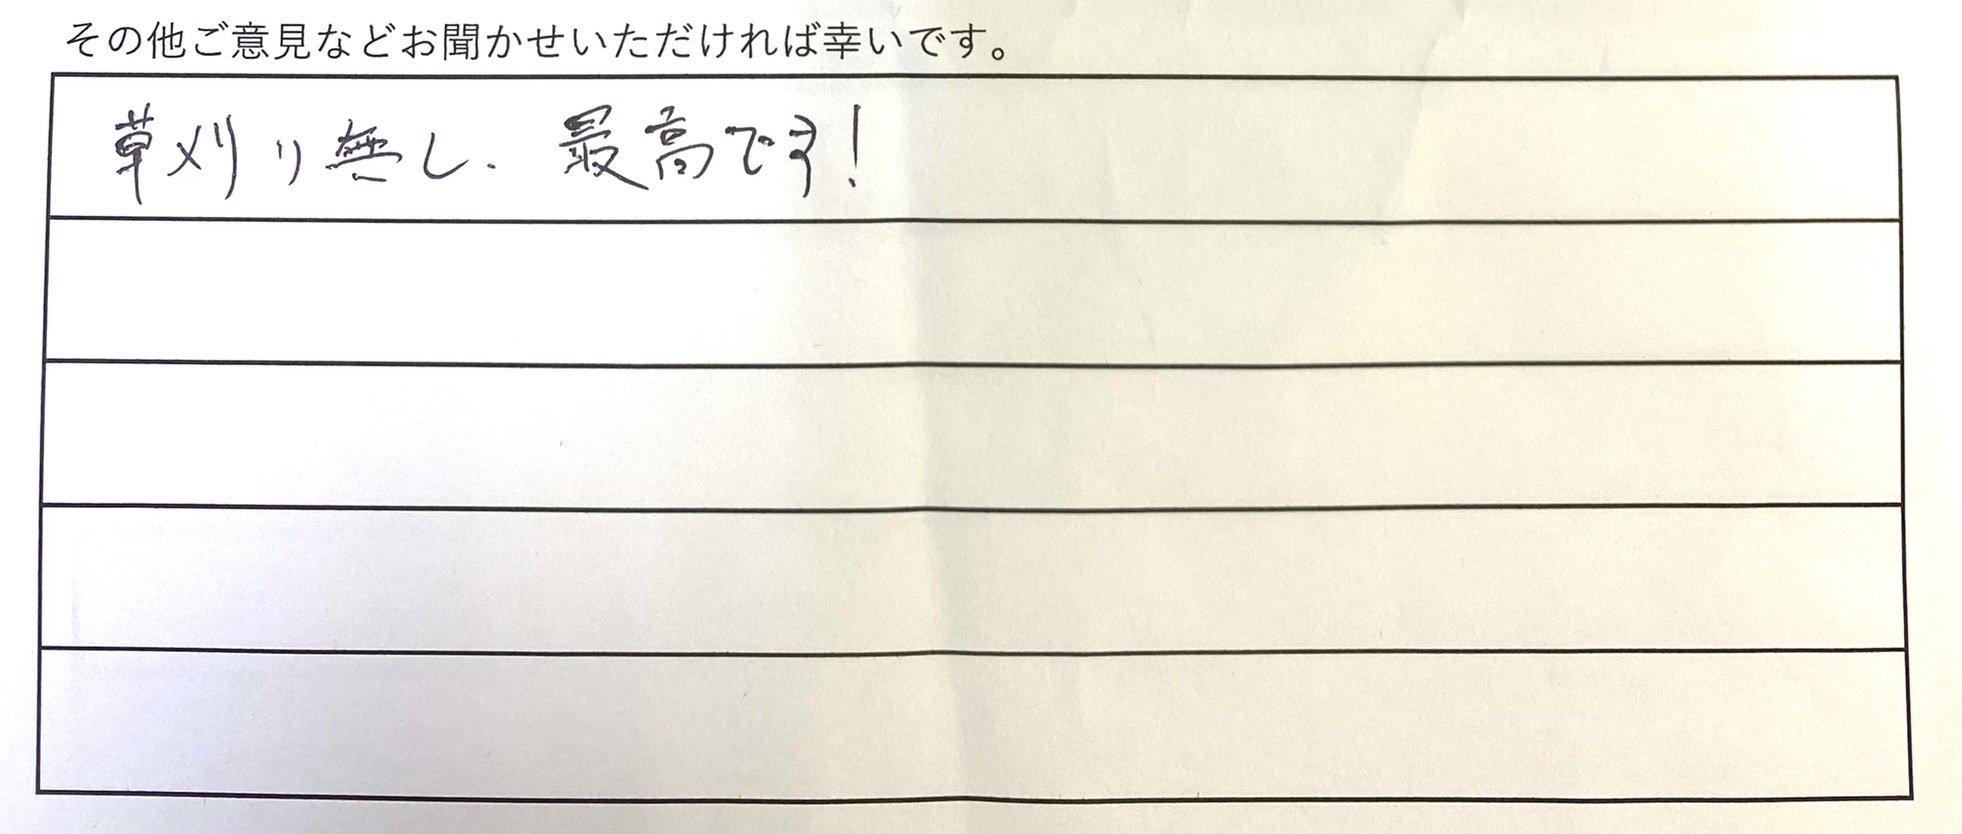 その他ご意見などお聞かせいただければ幸いです。
草刈り無し、最高です!